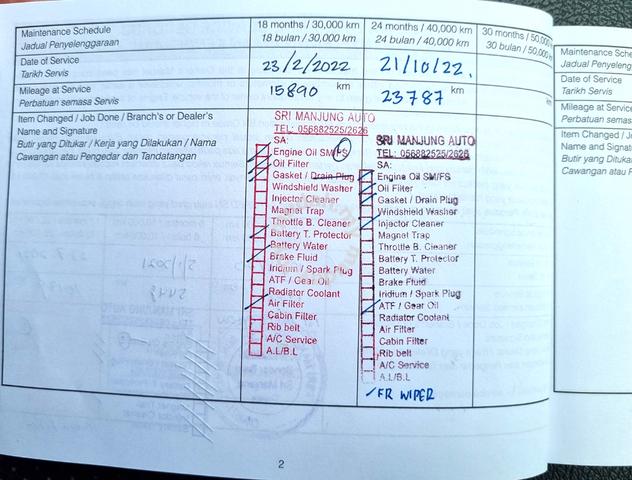 Maintenance Schedule
Jadual Penyelenggaraan
18 months / 30,000 km
18 bulan / 30,000 km
24 months / 40,000 km
24 bulan / 40,000 km
30 months / 50,000
30 bulan / 50,000 km
Date of Service
Tarikh Servis
23/2/2022
21/10/22.
Mileage at Service
Perbatuan semasa Servis
15890 km
23787 km
Item Changed / Job Done / Branch's or Dealer's
Name and Signature
Butir yang Ditukar / Kerja yang Dilakukan / Nama
Cawangan atau Pengedar dan Tandatangan
SRI MANJUNG AUTO
TEL: 056882525/2626
SA:
Engine Oil SM/FS
Oil Filter
Gasket / Drain Plug
Windshield Washer
Injector Cleaner
Magnet Trap
Throttle B. Cleaner
Battery T. Protector
Battery Water
Brake Fluid
Iridium / Spark Plug
ATF / Gear Oil
Radiator Coolant
Air Filter
Cabin Filter
Rib belt
A/C Service
A.L/B.L
SRI MANJUNG AUTO
TEL: 056882525/2626
SA:
Engine Oil SM/FS
Oil Filter
Gasket / Drain Plug
Windshield Washer
Injector Cleaner
Magnet Trap
Throttle B. Cleaner
Battery T. Protector
Battery Water
Brake Fluid
Iridium / Spark Plug
ATF / Gear Oil
Radiator Coolant
Air Filter
Cabin Filter
Rib belt
A/C Service
A.L/B.L
FR WIPER
2
Maintenance Sche
Jadual Penyeleng
Date of Service
Tarikh Servis
Mileage at Service
Perbatuan semasa
Item Changed / J
Name and Signat
Butir yang Dituka
Cawangan atau P